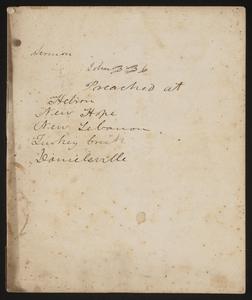 Sermon
John 3 36
Preached at
Hebron
New Hope
New Lebanon
Turkey Creek
Danielsville